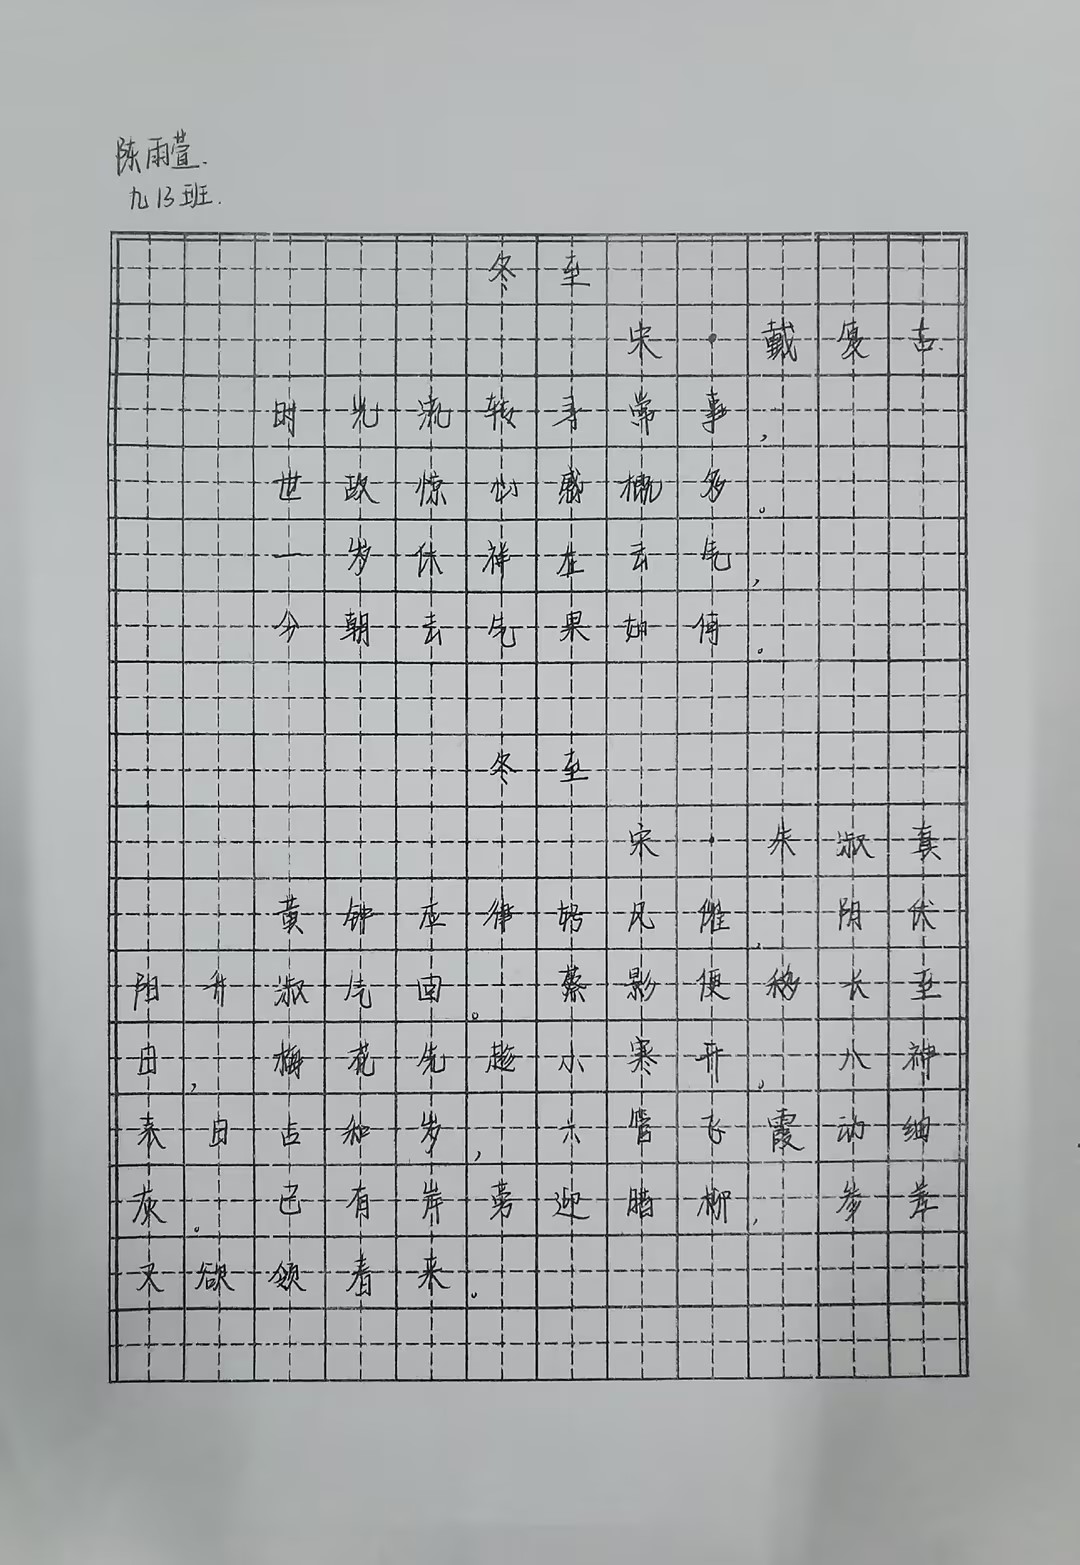 陈雨萱.
九13班.
冬至
宋·戴复古.
时光流转寻常事,
世政惊心感概多。
一岁休祥在去气,
今朝去气果如何。
冬至
宋·朱淑真
黄钟应律好风催,阴伏
阳升淑气回。葵影便移长至
日,梅花先趁小寒开,八神
表日占和岁,六管飞霞动细
灰。已有岸旁迎腊柳,参差
又欲领春来。